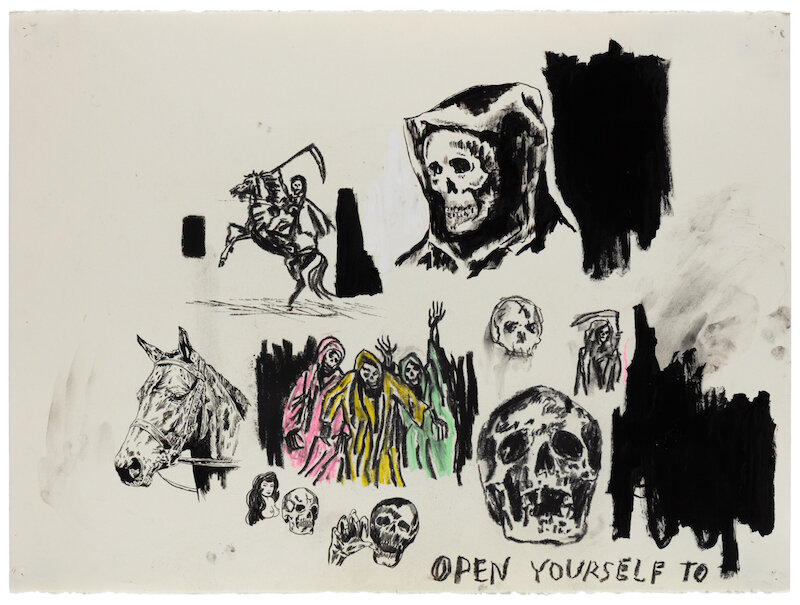 OPEN YOURSELF TO